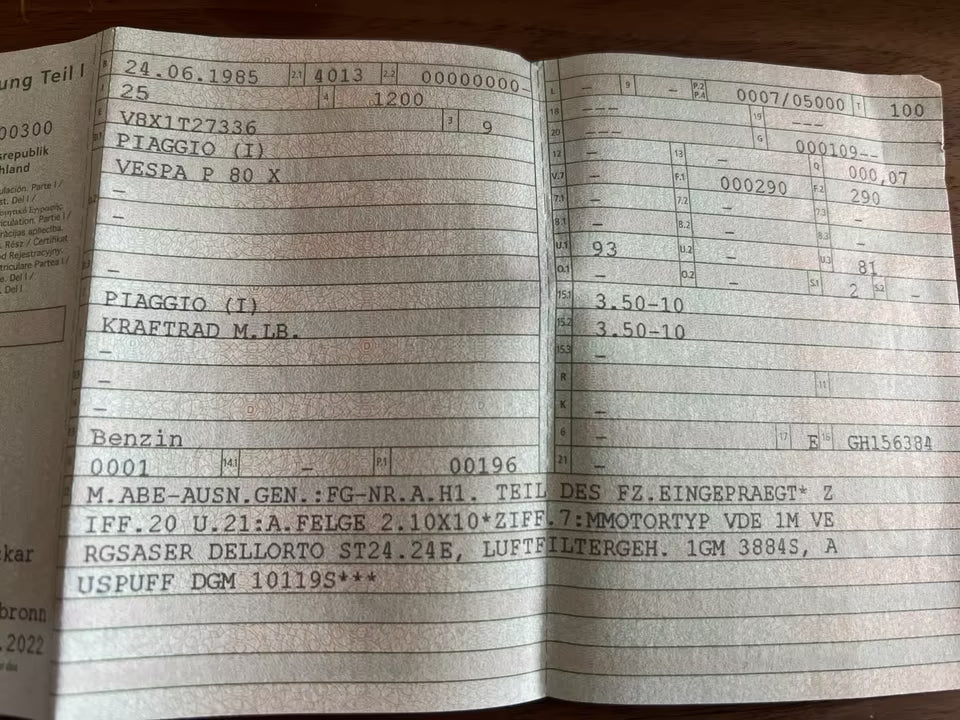 ung Teil I
00300
srepublik
hland
B 24.06.1985 2.1 4013 2.2 00000000-
25 4 1200
V8X1T27336 3 9
PIAGGIO (I)
VESPA P 80 X
–
–
–
PIAGGIO (I)
KRAFTRAD M.LB.
–
–
–
Benzin
0001 14.1 – P.1 00196
L – 9 – P.2 P.4 0007/05000 T 100
18 --- 19 ---
20 --- G 000109--
12 – 13 – Q 000,07
V.7 – F.1 000290 F.2 290
7.1 – 7.2 – 7.3 –
8.1 – 8.2 – 8.3 –
U.1 93 U.2 – U.3 81
O.1 – O.2 – S.1 2 S.2 –
15.1 3.50-10
15.2 3.50-10
15.3 –
R 11
K –
6 – 17 E 16 GH156384
21 –
M.ABE-AUSN.GEN.:FG-NR.A.H1. TEIL DES FZ.EINGEPRAEGT* Z
IFF.20 U.21:A.FELGE 2.10X10*ZIFF.7:MMOTORTYP VDE 1M VE
RGSASER DELLORTO ST24.24E, LUFTFILTERGEH. 1GM 3884S, A
USPUFF DGM 10119S***
kar
bronn
.2022